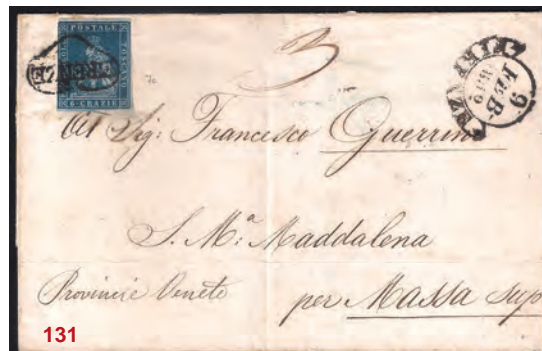 POSTALE
TOSCANO
6 CRAZIE
FIRENZE
7a
3
FIRENZE
9
FEB.
Al Sig: Francesco Guerrini
S. M:a Maddalena
Provincie Venete
per Massa Sup
131